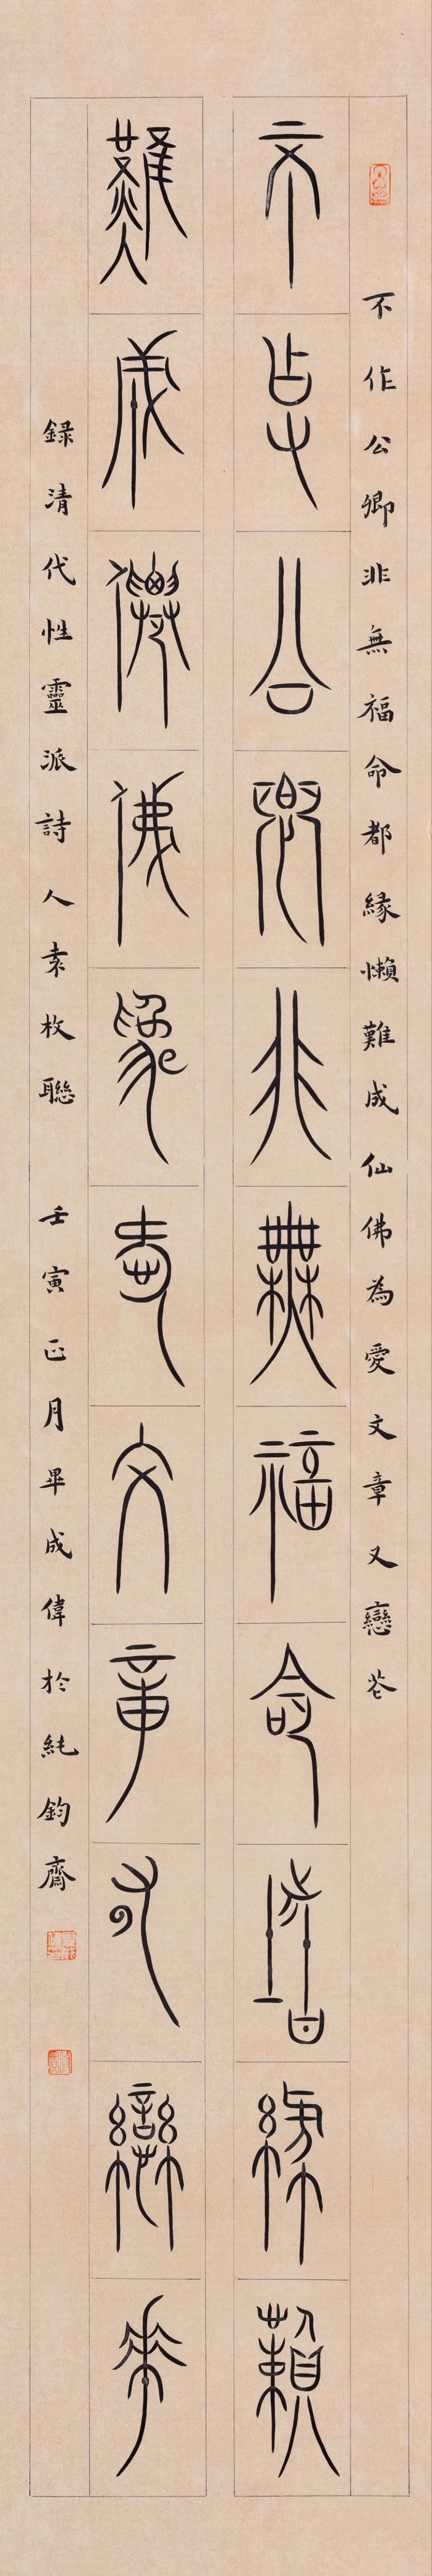 不作公卿非無福命都緣懶難成仙佛為愛文章又戀花
不作公卿非無福命都緣懶
難成僊佛為愛文章又戀花
錄清代性靈派詩人袁枚聯 壬寅正月畢成偉於純鈞齋